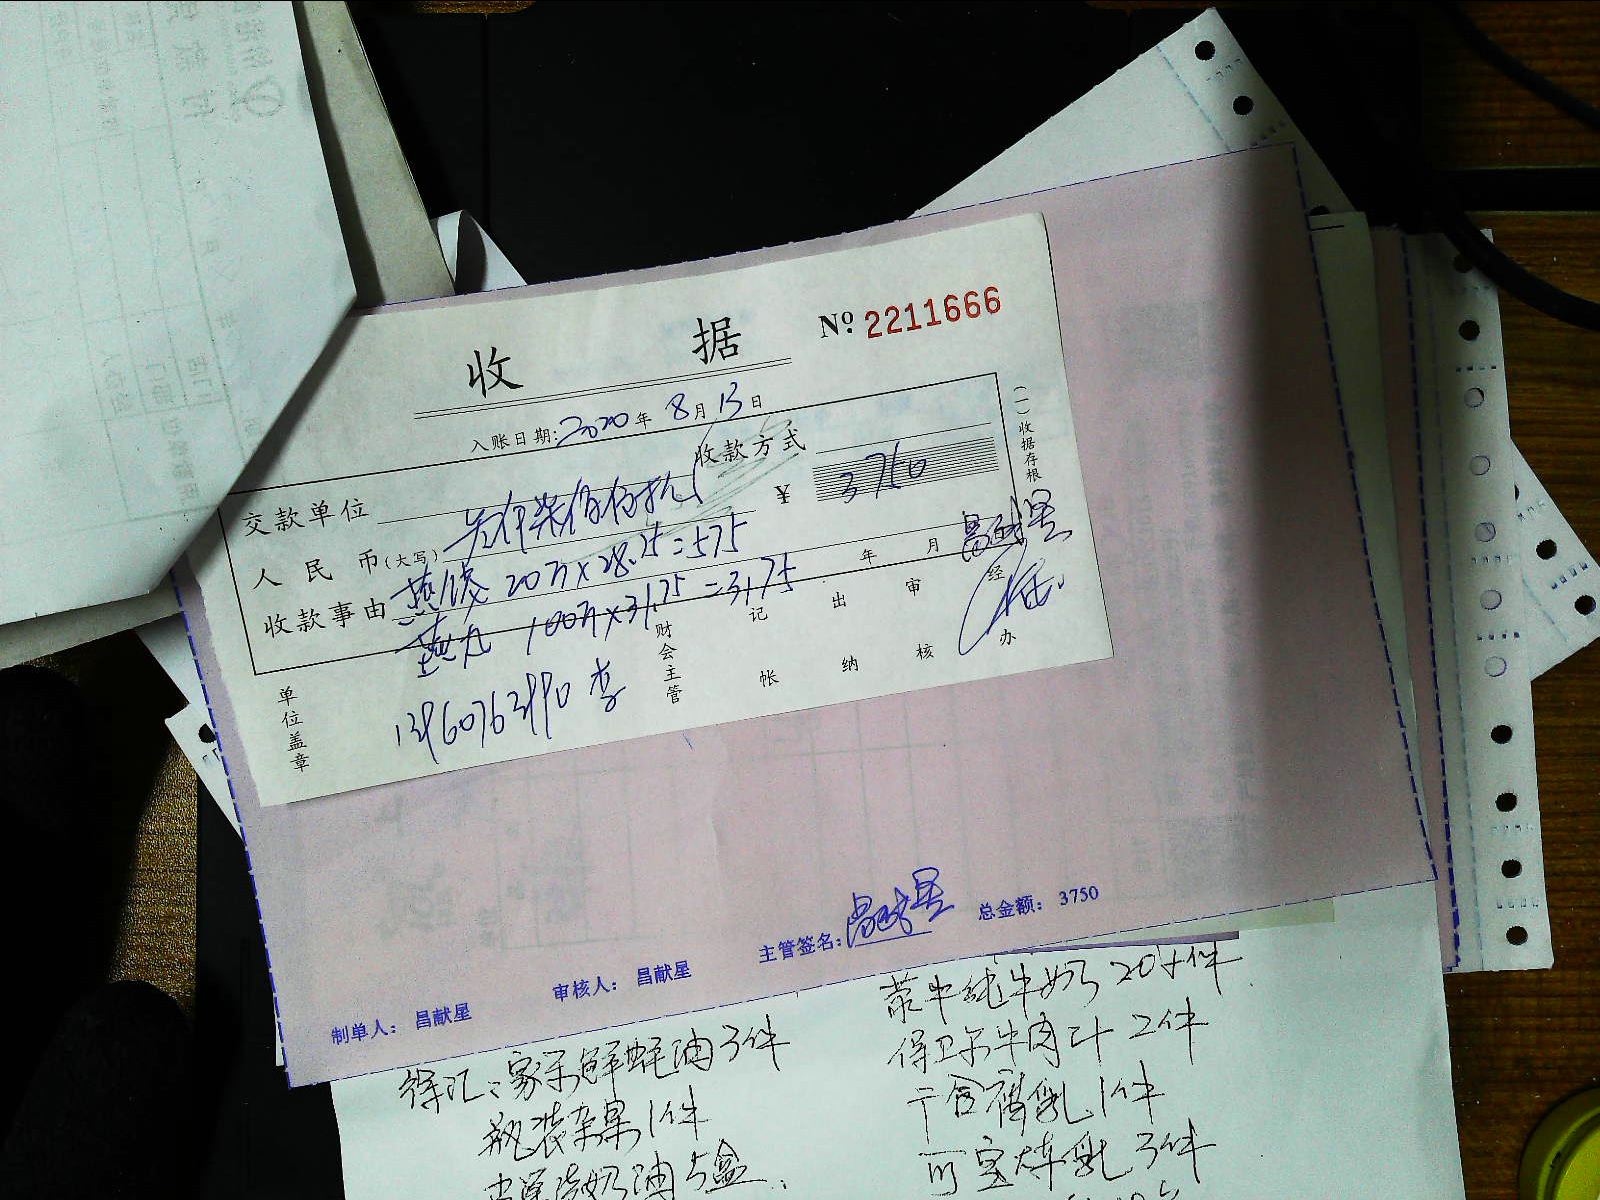 收 据
№ 2211666
入账日期: 2020 年 8 月 13 日
交款单位 收款方式
人民币(大写) 叁仟柒佰伍拾 ¥ 3750
收款事由 燕饺 20万×28.75=575 年 月 昌献星
燕丸 100万×31.75=3175
财会主管 记帐 出纳 审核 经办
单位盖章 13960763990 李
(一)收据存根
主管签名: 昌献星 总金额: 3750
制单人: 昌献星 审核人: 昌献星
徐汇: 家乐鲜蚝油3件
瓶装杂果1件
奶油5盒
蒙牛纯牛奶20件
得卫尔牛肉汁2件
广合腐乳1件
可宝炼乳3件